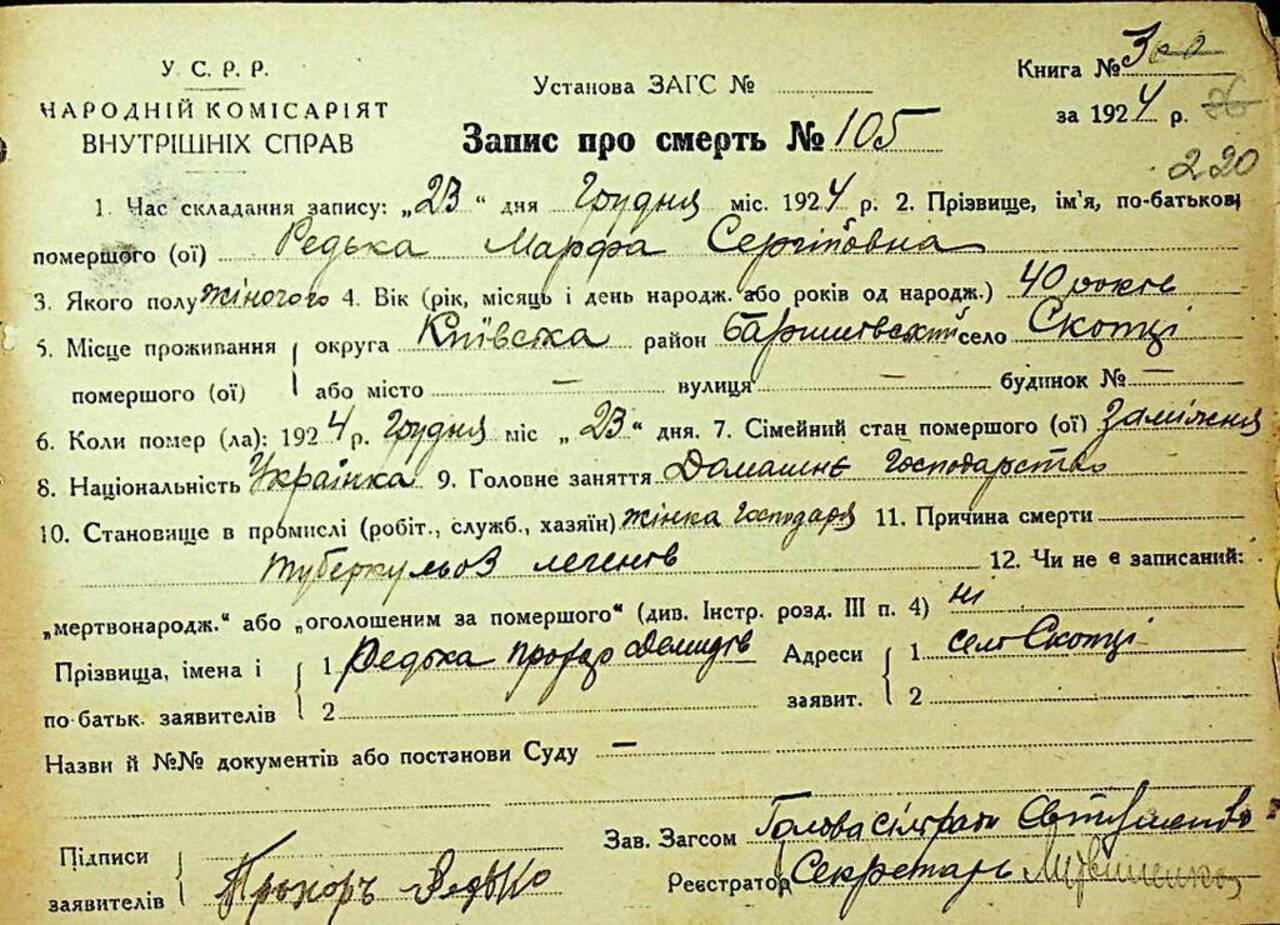 У. С. Р. Р.
НАРОДНІЙ КОМІСАРІЯТ
ВНУТРІШНІХ СПРАВ
Установа ЗАГС №
Книга № 3
за 1924 р.
220
Запис про смерть № 105
1. Час складання запису: „23“ дня Грудня міс. 1924 р. 2. Прізвище, ім'я, по-батькові
помершого (ої) Редька Марфа Сергіївна
3. Якого полу жіночого 4. Вік (рік, місяць і день народж. або років од народж.) 40 років
5. Місце проживання помершого (ої) округа Київська район Баришівський село Скопці
або місто — вулиця — будинок № —
6. Коли помер (ла): 1924 р. Грудня міс „23“ дня. 7. Сімейний стан помершого (ої) Заміжня
8. Національність Українка 9. Головне заняття Домашнє Господарство
10. Становище в промислі (робіт., служб., хазяїн) жінка господаря 11. Причина смерти
туберкульоз легенів 12. Чи не є записаний:
„мертвонародж.“ або „оголошеним за помершого“ (див. Інстр. розд. III п. 4) ні
Прізвища, імена і по-батьк. заявителів 1 Редька Прохар Демидів Адреси заявит. 1 село Скопці
2 2
Назви й №№ документів або постанови Суду —
Підписи заявителів Прохоръ Редько
Зав. Загсом Голова сільради
Реєстратор Секретарь